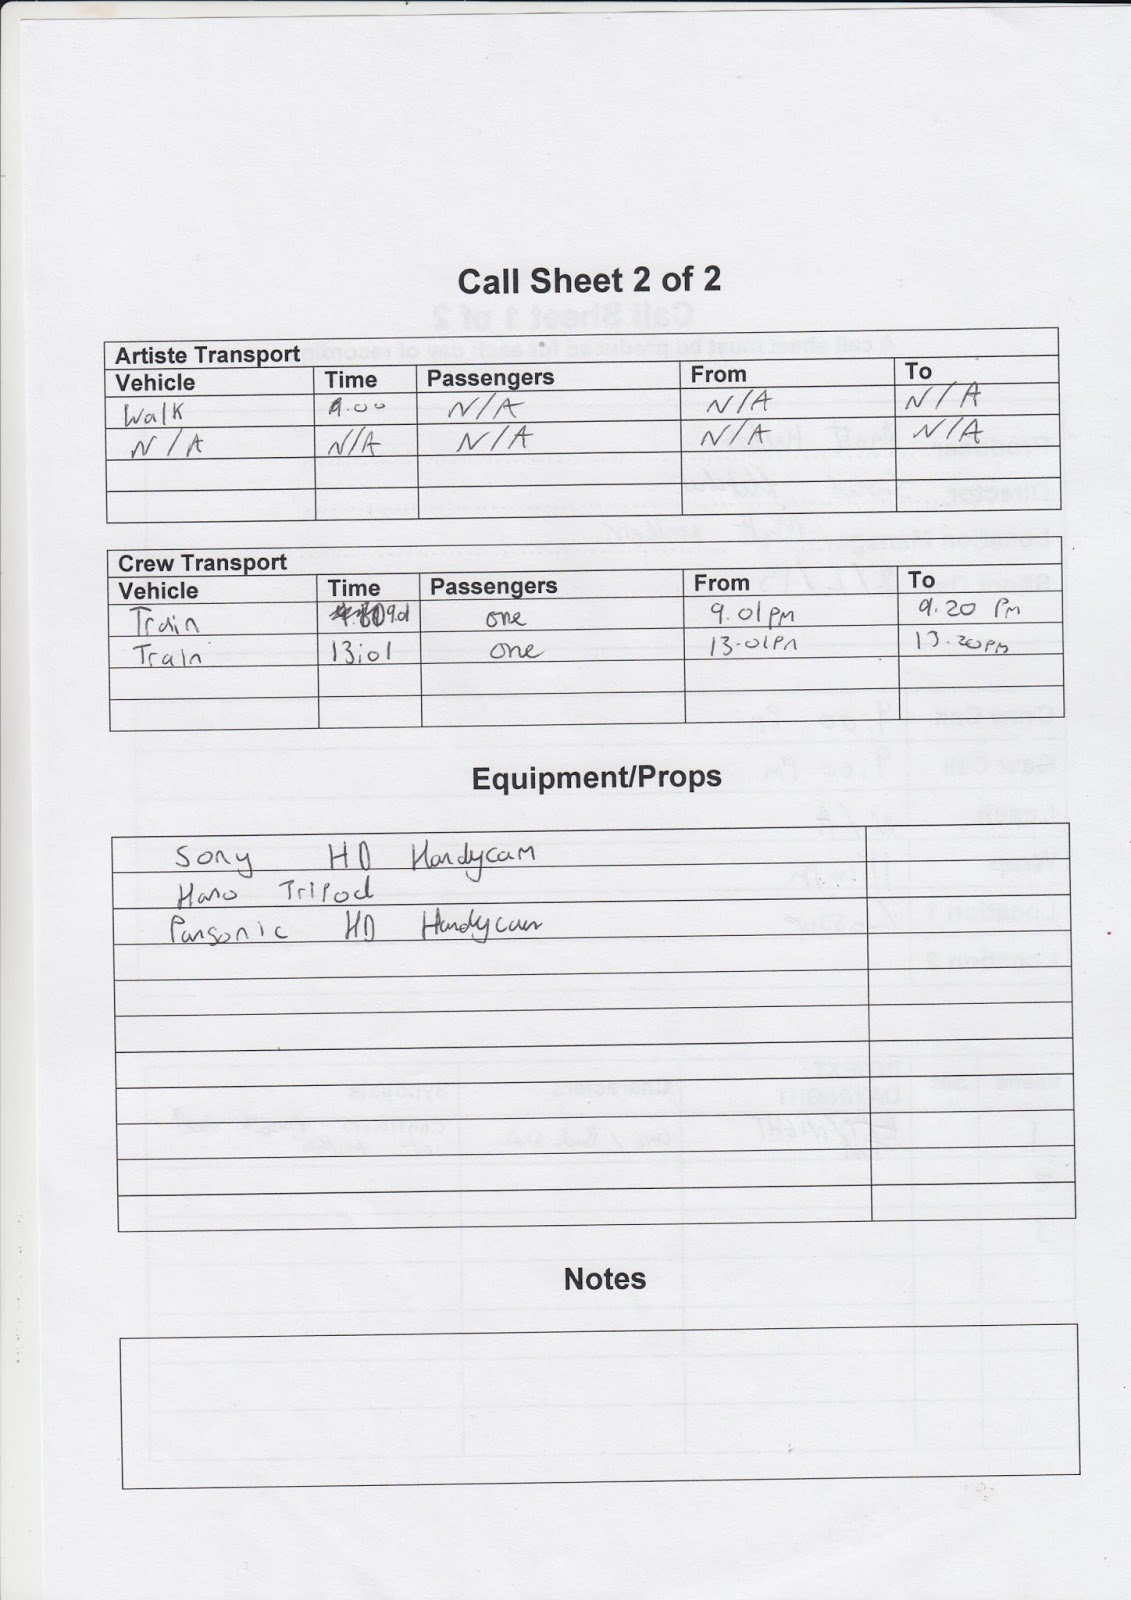 Call Sheet 2 of 2
Artiste Transport
Vehicle Time Passengers From To
Walk 9.00 N/A N/A N/A
N/A N/A N/A N/A N/A
Crew Transport
Vehicle Time Passengers From To
Train 9.01 one 9.01pm 9.20 Pm
Train 13:01 one 13.01Pm 13.20PM
Equipment/Props
Sony HD Handycam
Tripod
HD Handycam
Notes